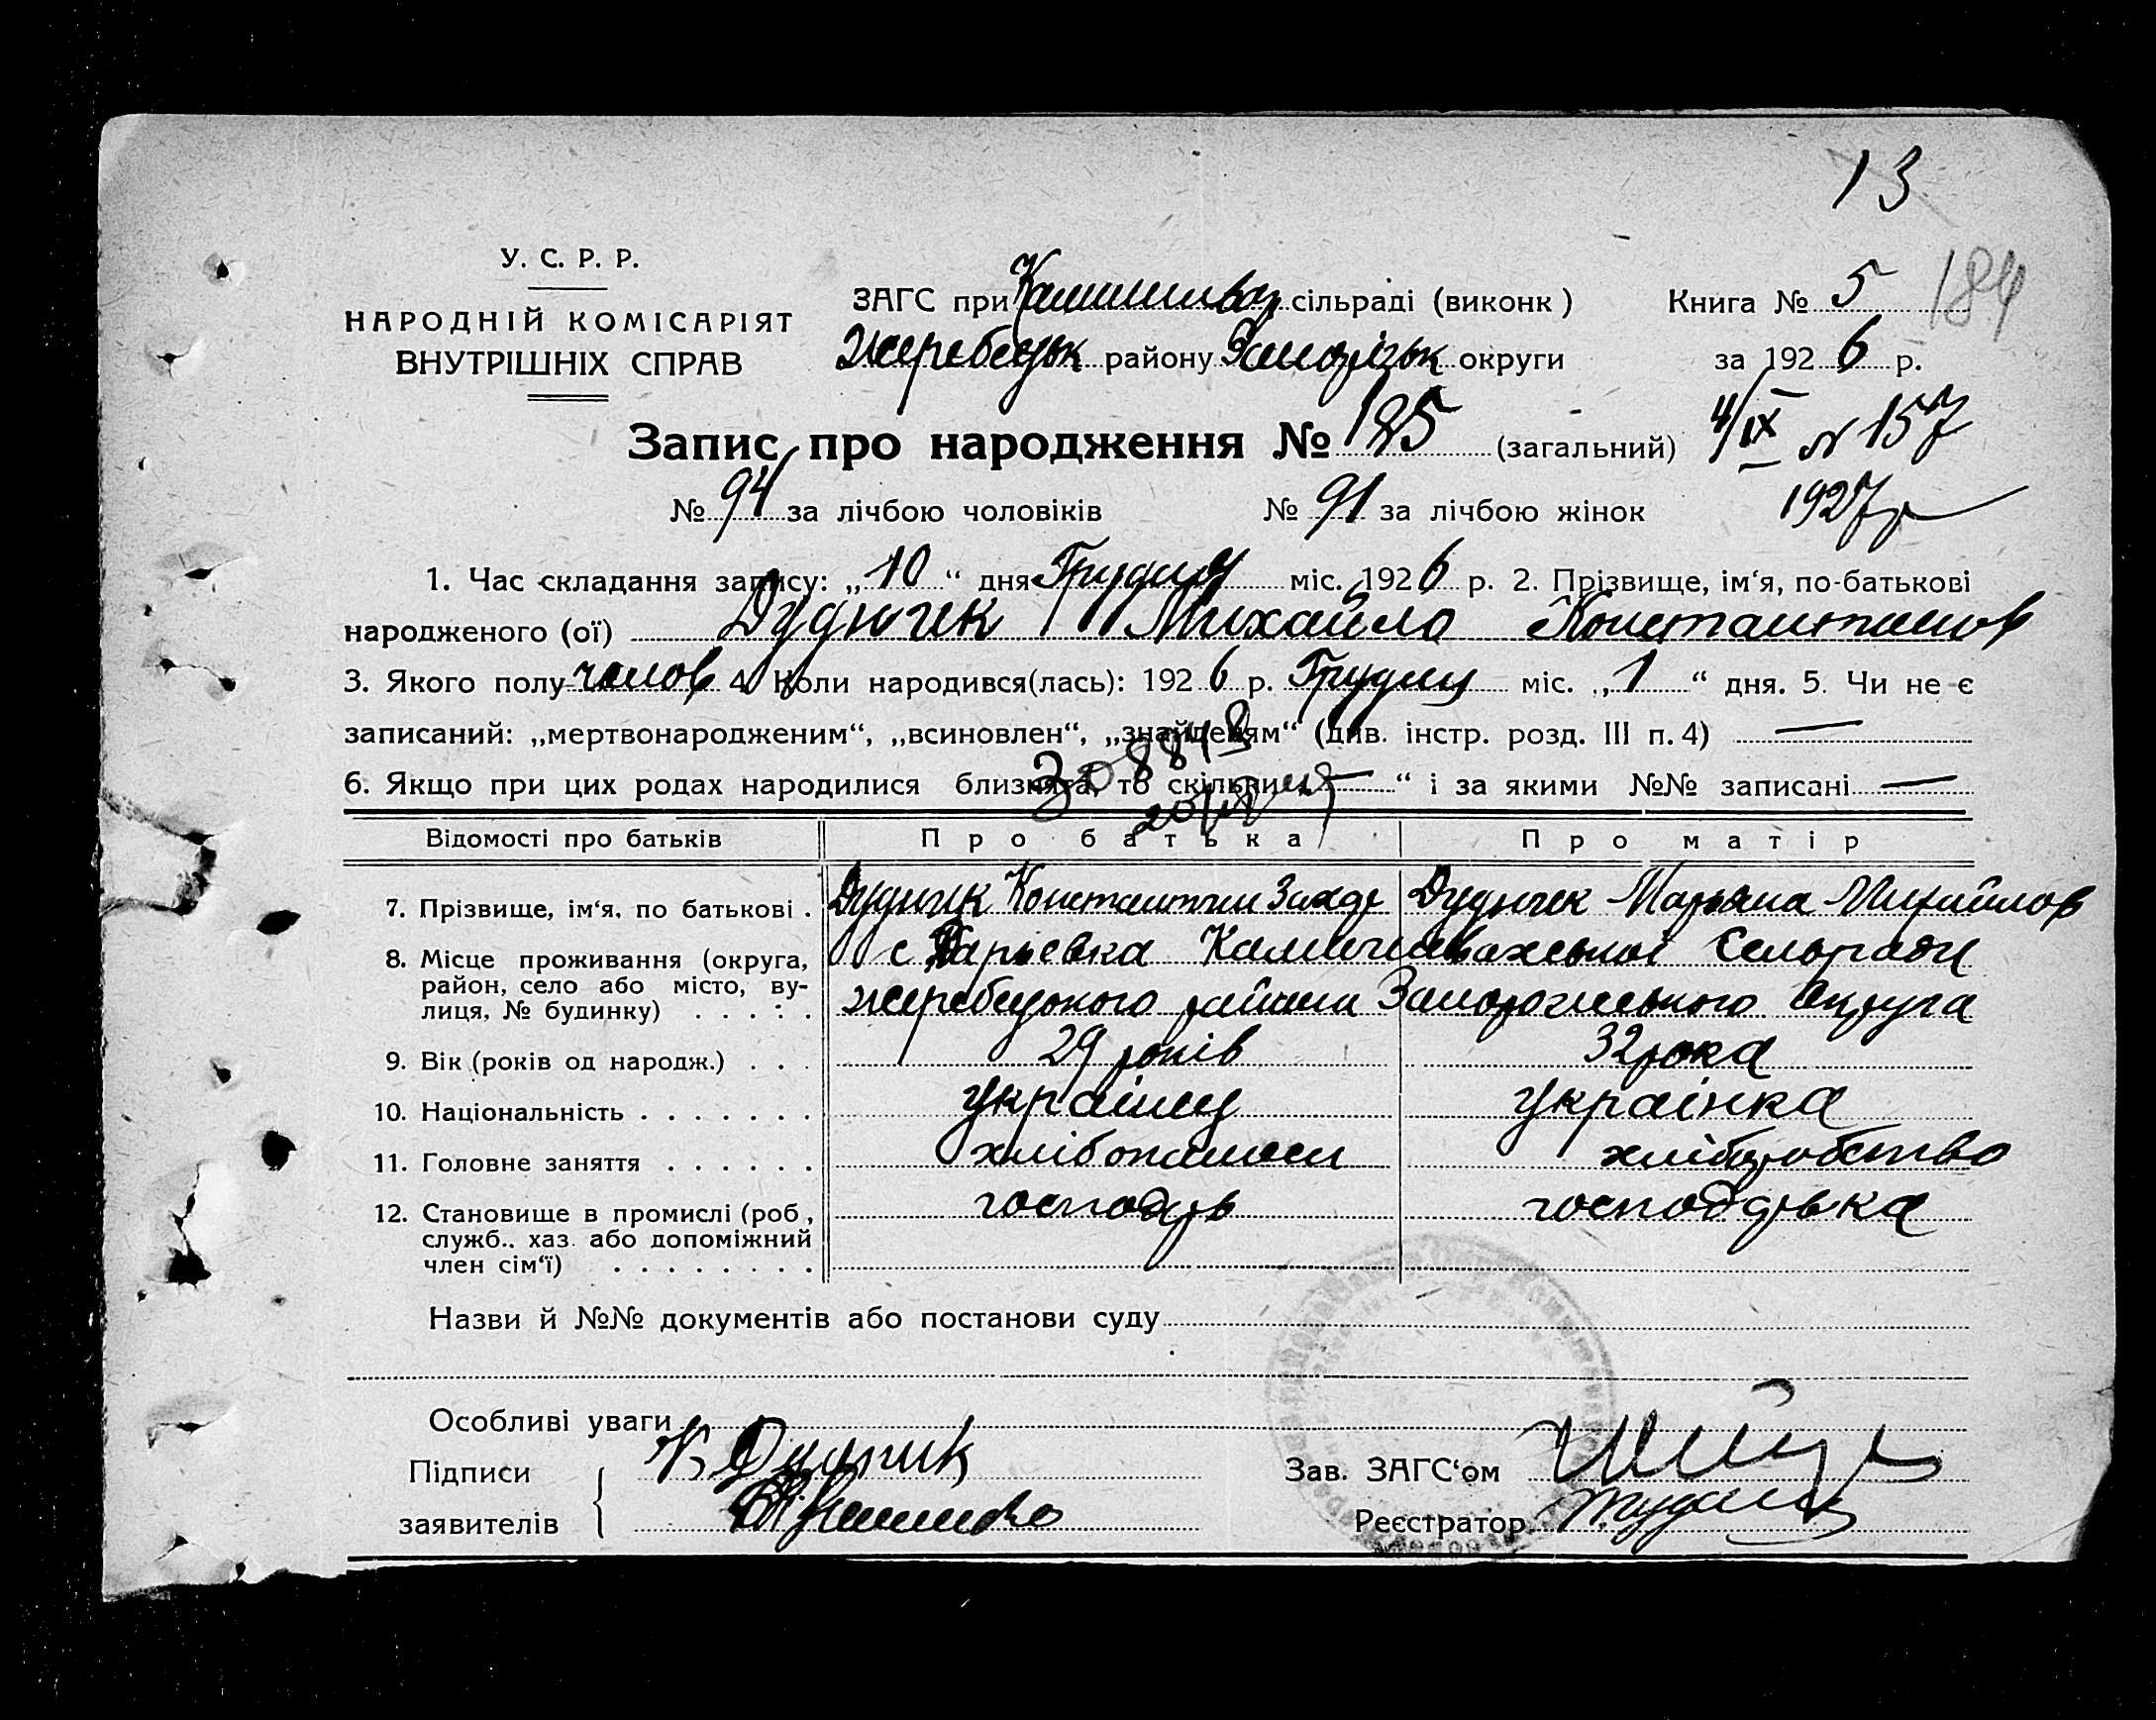 13
У. С. Р. Р.
НАРОДНІЙ КОМІСАРІЯТ
ВНУТРІШНІХ СПРАВ
ЗАГС при сільраді (виконк)
Жеребецьк району Запорізьк округи
Книга № 5
184
за 1926 р.
Запис про народження № 185 (загальний)
4/IX № 157
1927 р
№ 94 за лічбою чоловіків № 91 за лічбою жінок
1. Час складання запису: „10“ дня Грудня міс. 1926 р. 2. Прізвище, ім‘я, по-батькові
народженого (ої) Дудник Михайло Константинов
3. Якого полу челов 4. Коли народився(лась): 1926 р. Грудня міс. „1“ дня. 5. Чи не є
записаний: „мертвонародженим“, „всиновлен“, „знайденям“ (див. інстр. розд. III п. 4) —
6. Якщо при цих родах народилися близнята, то скільки „—“ і за якими №№ записані —
Відомості про батьків Про батька Про матір
7. Прізвище, ім‘я, по батькові . Дудник Константин Захар Дудник Марьяна Михайлов
8. Місце проживання (округа,
район, село або місто, ву-
лиця, № будинку) . . . . .
с Дарьевка Камишевахської Сельради
жеребецького района Запорожського Округа
9. Вік (років од народж.) . . . 29 років 32 рока
10. Національність . . . . . . . українец українка
11. Головне заняття . . . . . . хліборобство
12. Становище в промислі (роб., господарь господарька
служб., хаз. або допоміжний
член сім‘ї) . . . . . . . .
Назви й №№ документів або постанови суду
Особливі уваги
Підписи К Дудник
заявителів
Зав. ЗАГС‘ом
Реєстратор